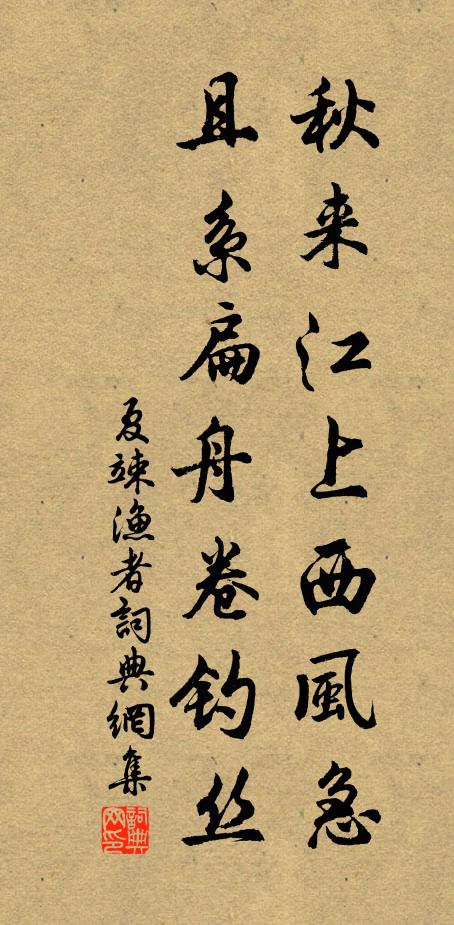 秋来江上西風急
且系扁舟卷钓丝
夏竦漁者詞典網集
詞典網印